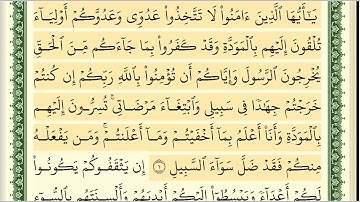 يَـٰٓأَيُّهَا ٱلَّذِينَ ءَامَنُوا۟ لَا تَتَّخِذُوا۟ عَدُوِّى وَعَدُوَّكُمْ أَوْلِيَآءَ
تُلْقُونَ إِلَيْهِم بِٱلْمَوَدَّةِ وَقَدْ كَفَرُوا۟ بِمَا جَآءَكُم مِّنَ ٱلْحَقِّ
يُخْرِجُونَ ٱلرَّسُولَ وَإِيَّاكُمْ أَن تُؤْمِنُوا۟ بِٱللَّهِ رَبِّكُمْ إِن كُنتُمْ
خَرَجْتُمْ جِهَـٰدًا فِى سَبِيلِى وَٱبْتِغَآءَ مَرْضَاتِى ۚ تُسِرُّونَ إِلَيْهِم
بِٱلْمَوَدَّةِ وَأَنَا۠ أَعْلَمُ بِمَآ أَخْفَيْتُمْ وَمَآ أَعْلَنتُمْ ۚ وَمَن يَفْعَلْهُ
مِنكُمْ فَقَدْ ضَلَّ سَوَآءَ ٱلسَّبِيلِ ١ إِن يَثْقَفُوكُمْ يَكُونُوا۟
لَكُمْ أَعْدَآءً وَيَبْسُطُوٓا۟ إِلَيْكُمْ أَيْدِيَهُمْ وَأَلْسِنَتَهُم بِٱلسُّوٓءِ